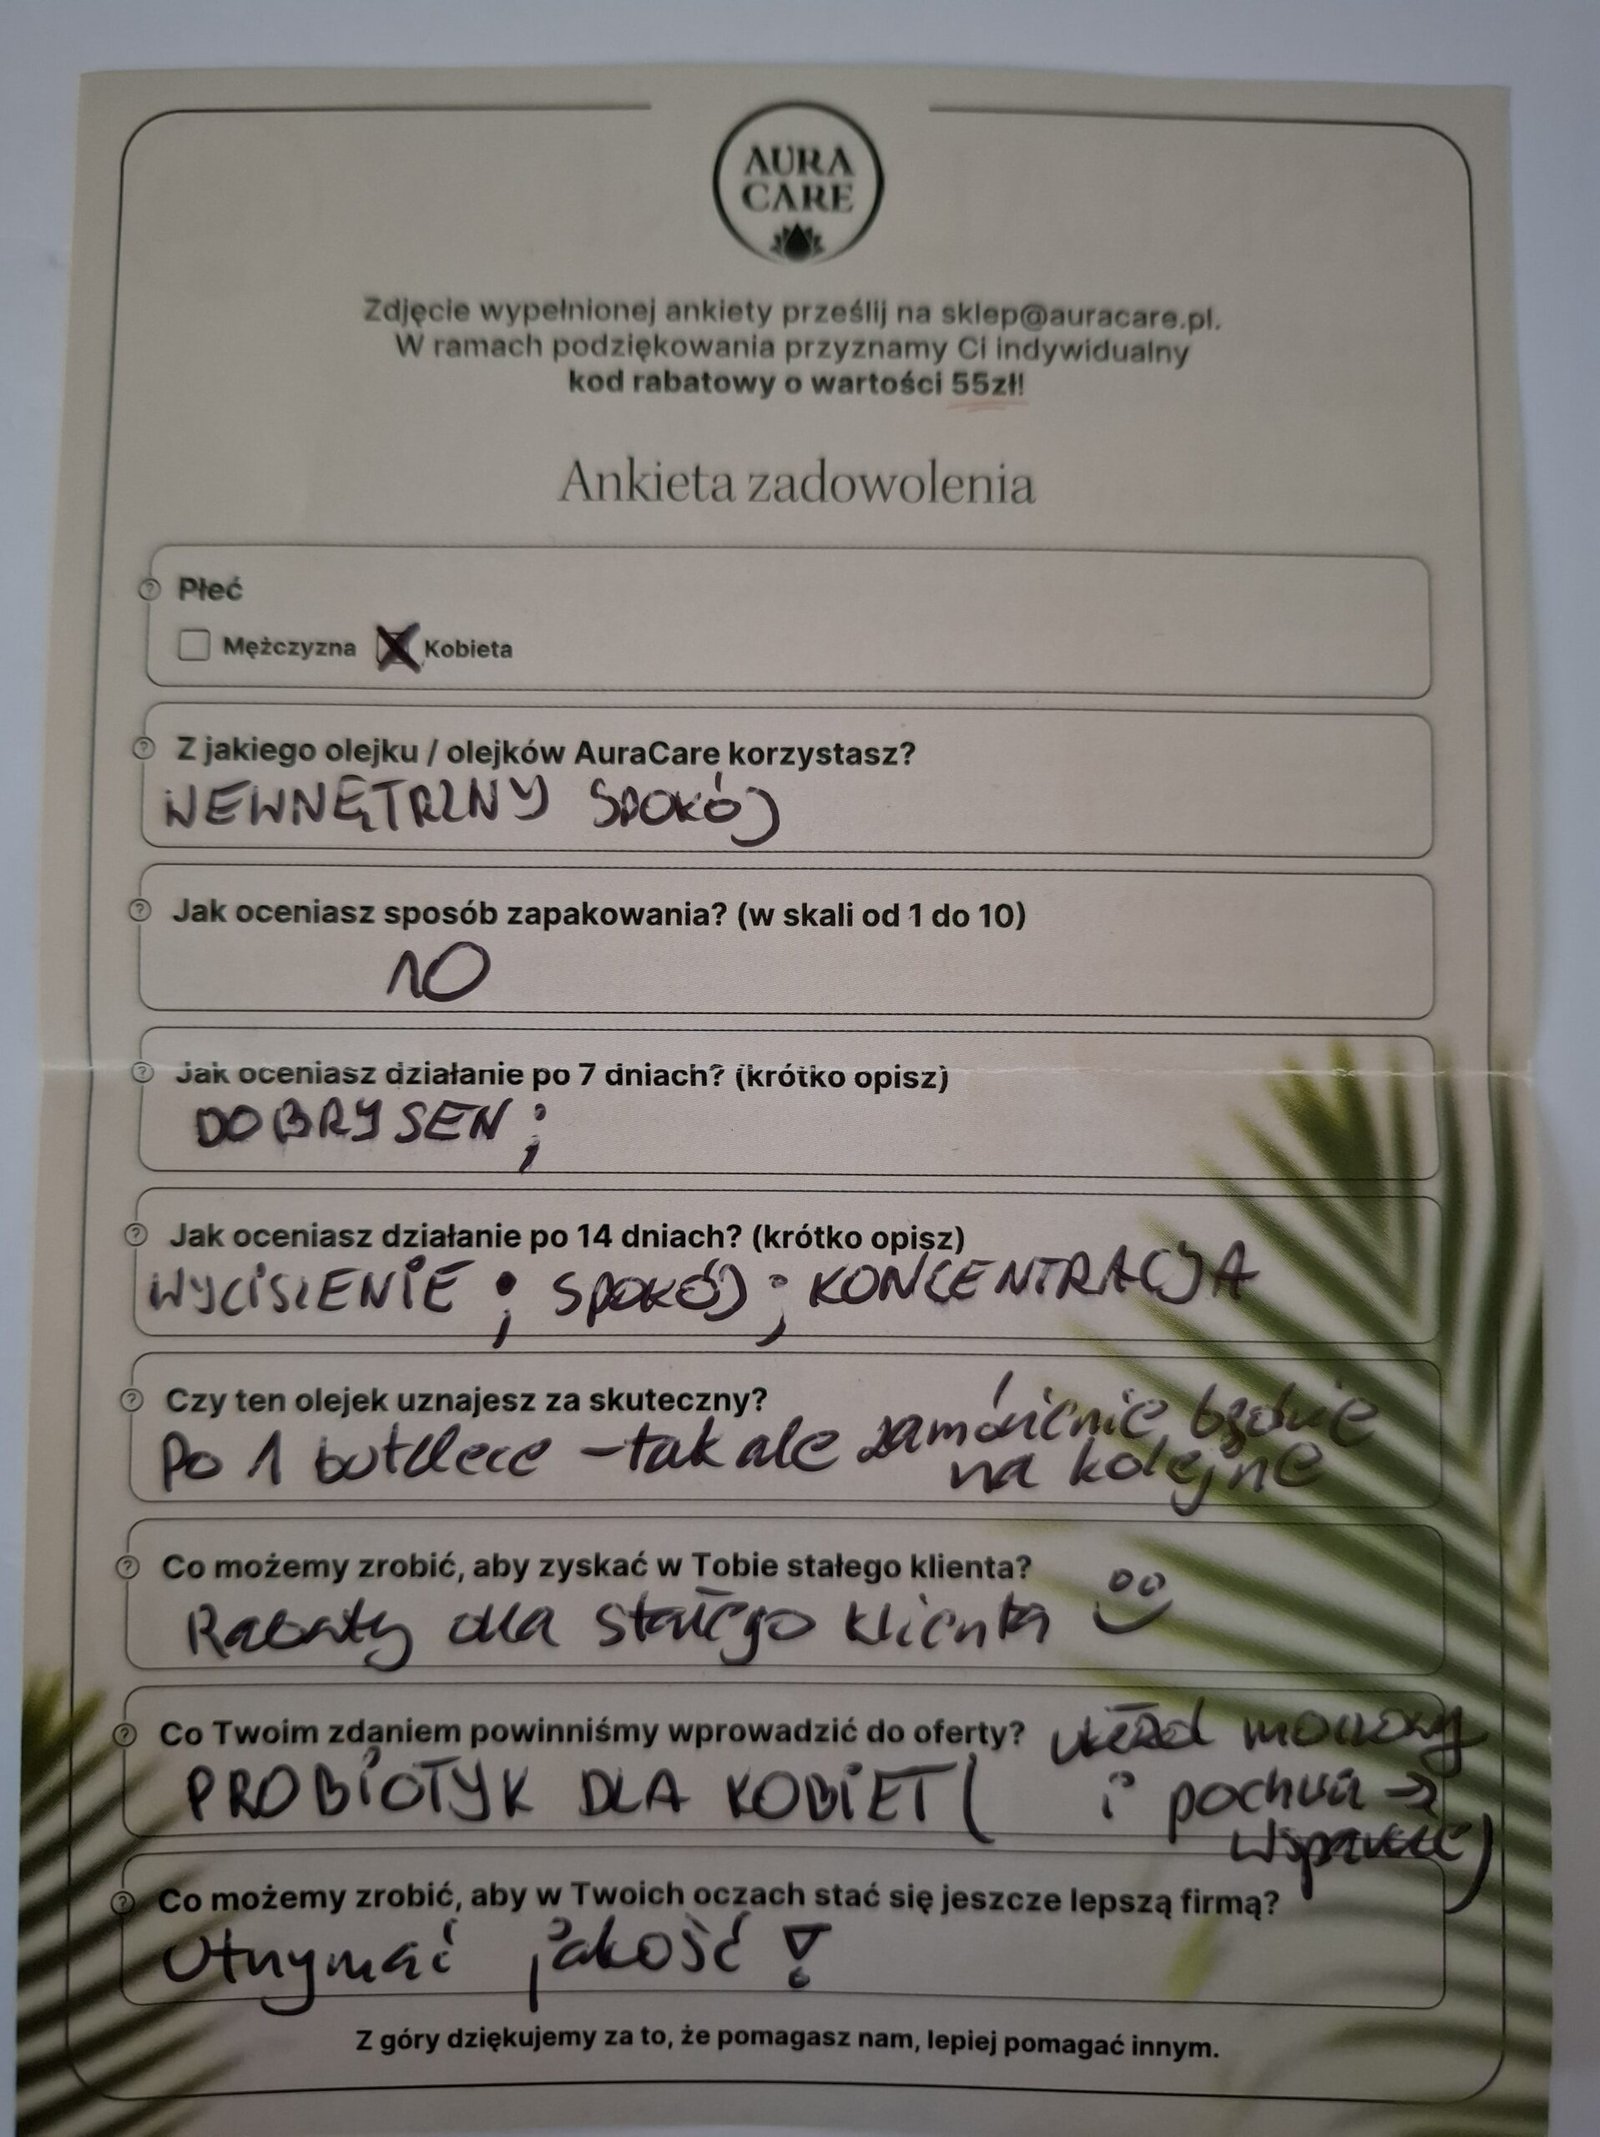 AURA
CARE
Zdjęcie wypełnionej ankiety prześlij na sklep@auracare.pl.
W ramach podziękowania przyznamy Ci indywidualny
kod rabatowy o wartości 55zł!
Ankieta zadowolenia
Płeć
Mężczyzna Kobieta
Z jakiego olejku / olejków AuraCare korzystasz?
WEWNĘTRZNY SPOKÓJ
Jak oceniasz sposób zapakowania? (w skali od 1 do 10)
10
Jak oceniasz działanie po 7 dniach? (krótko opisz)
DOBRY SEN ;
Jak oceniasz działanie po 14 dniach? (krótko opisz)
WYCISZENIE ; SPOKÓJ ; KONCENTRACJA
Czy ten olejek uznajesz za skuteczny?
Po 1 butelece - tak ale zamówienie będzie
na kolejne
Co możemy zrobić, aby zyskać w Tobie stałego klienta?
Rabaty dla stałego klienta
Co Twoim zdaniem powinniśmy wprowadzić do oferty?
PROBIOTYK DLA KOBIET ( układ moczowy
i pochwa →
wsparcie)
Co możemy zrobić, aby w Twoich oczach stać się jeszcze lepszą firmą?
Utrzymać jakość !
Z góry dziękujemy za to, że pomagasz nam, lepiej pomagać innym.